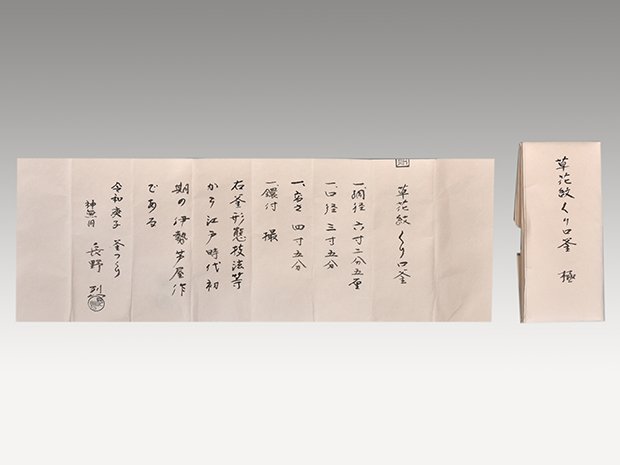 草花紋 くり口釜
一、胴径 六寸二分五厘
一、口径 三寸五分
一、高さ 四寸五分
一、鐶付 撮
右釜形態技法等
から江戸時代初
期の伊勢芦屋作
である
令和庚子 釜つくり
神無月 長野 烈
草花紋 くり口釜 極